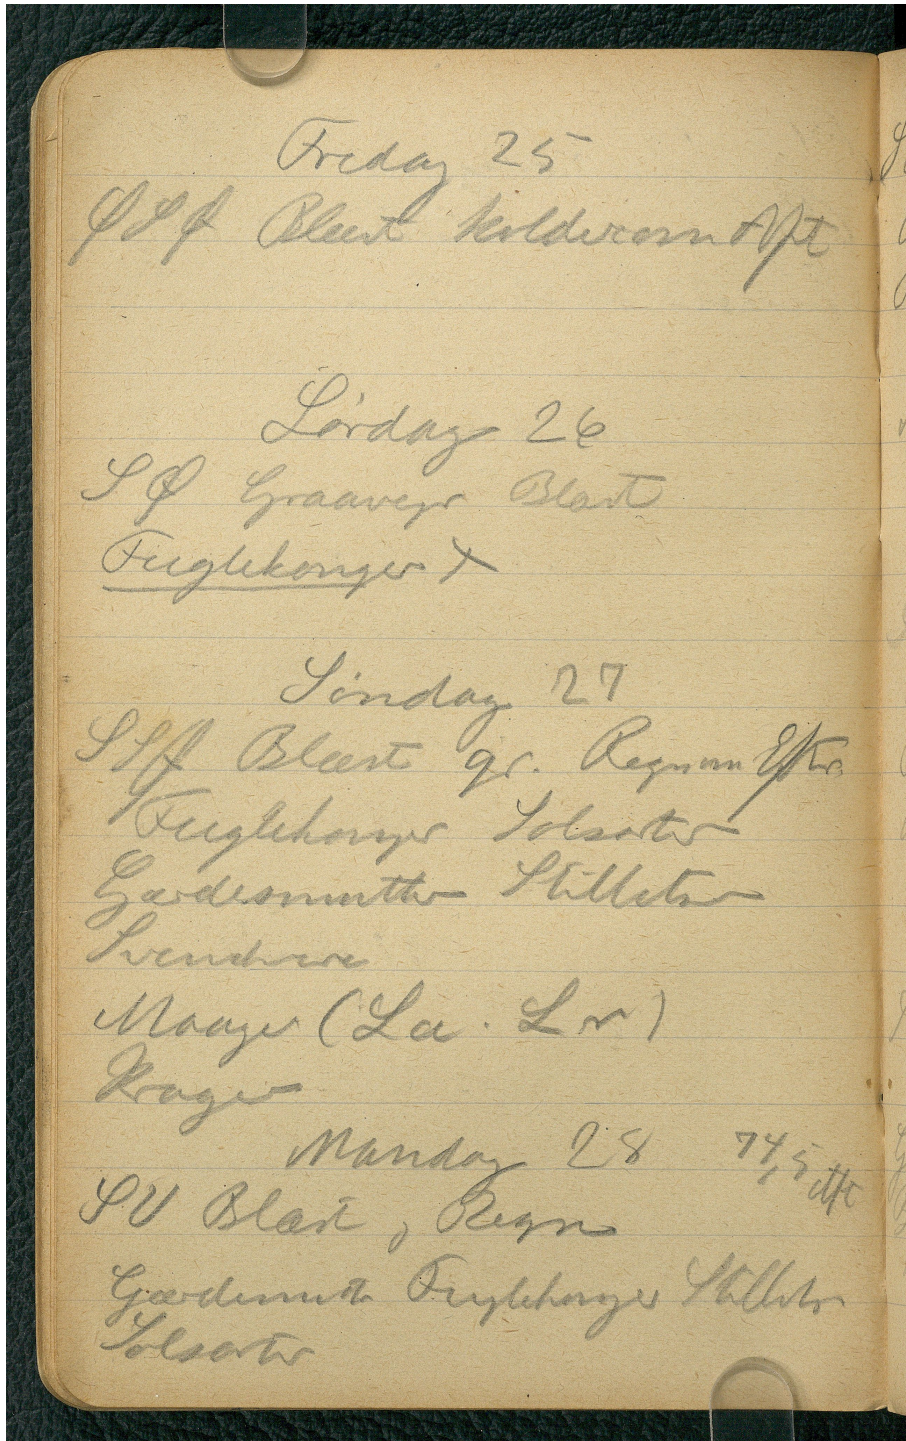 Fredag 25
ØSØ Blæst koldere om Aft
Lørdag 26
SØ Graavejr Blæst
Fuglekonger X
Søndag 27
SSØ Blæst gr. Regn om Efter
Fuglekonger Solsorter
Gærdesmutter Stillitser
Svenskere
Maager (La. Lr)
Krager
Mandag 28 74,5 Aft
SV Blæst og Regn
Gærdesmut Fuglekonger Stillits
Solsorter